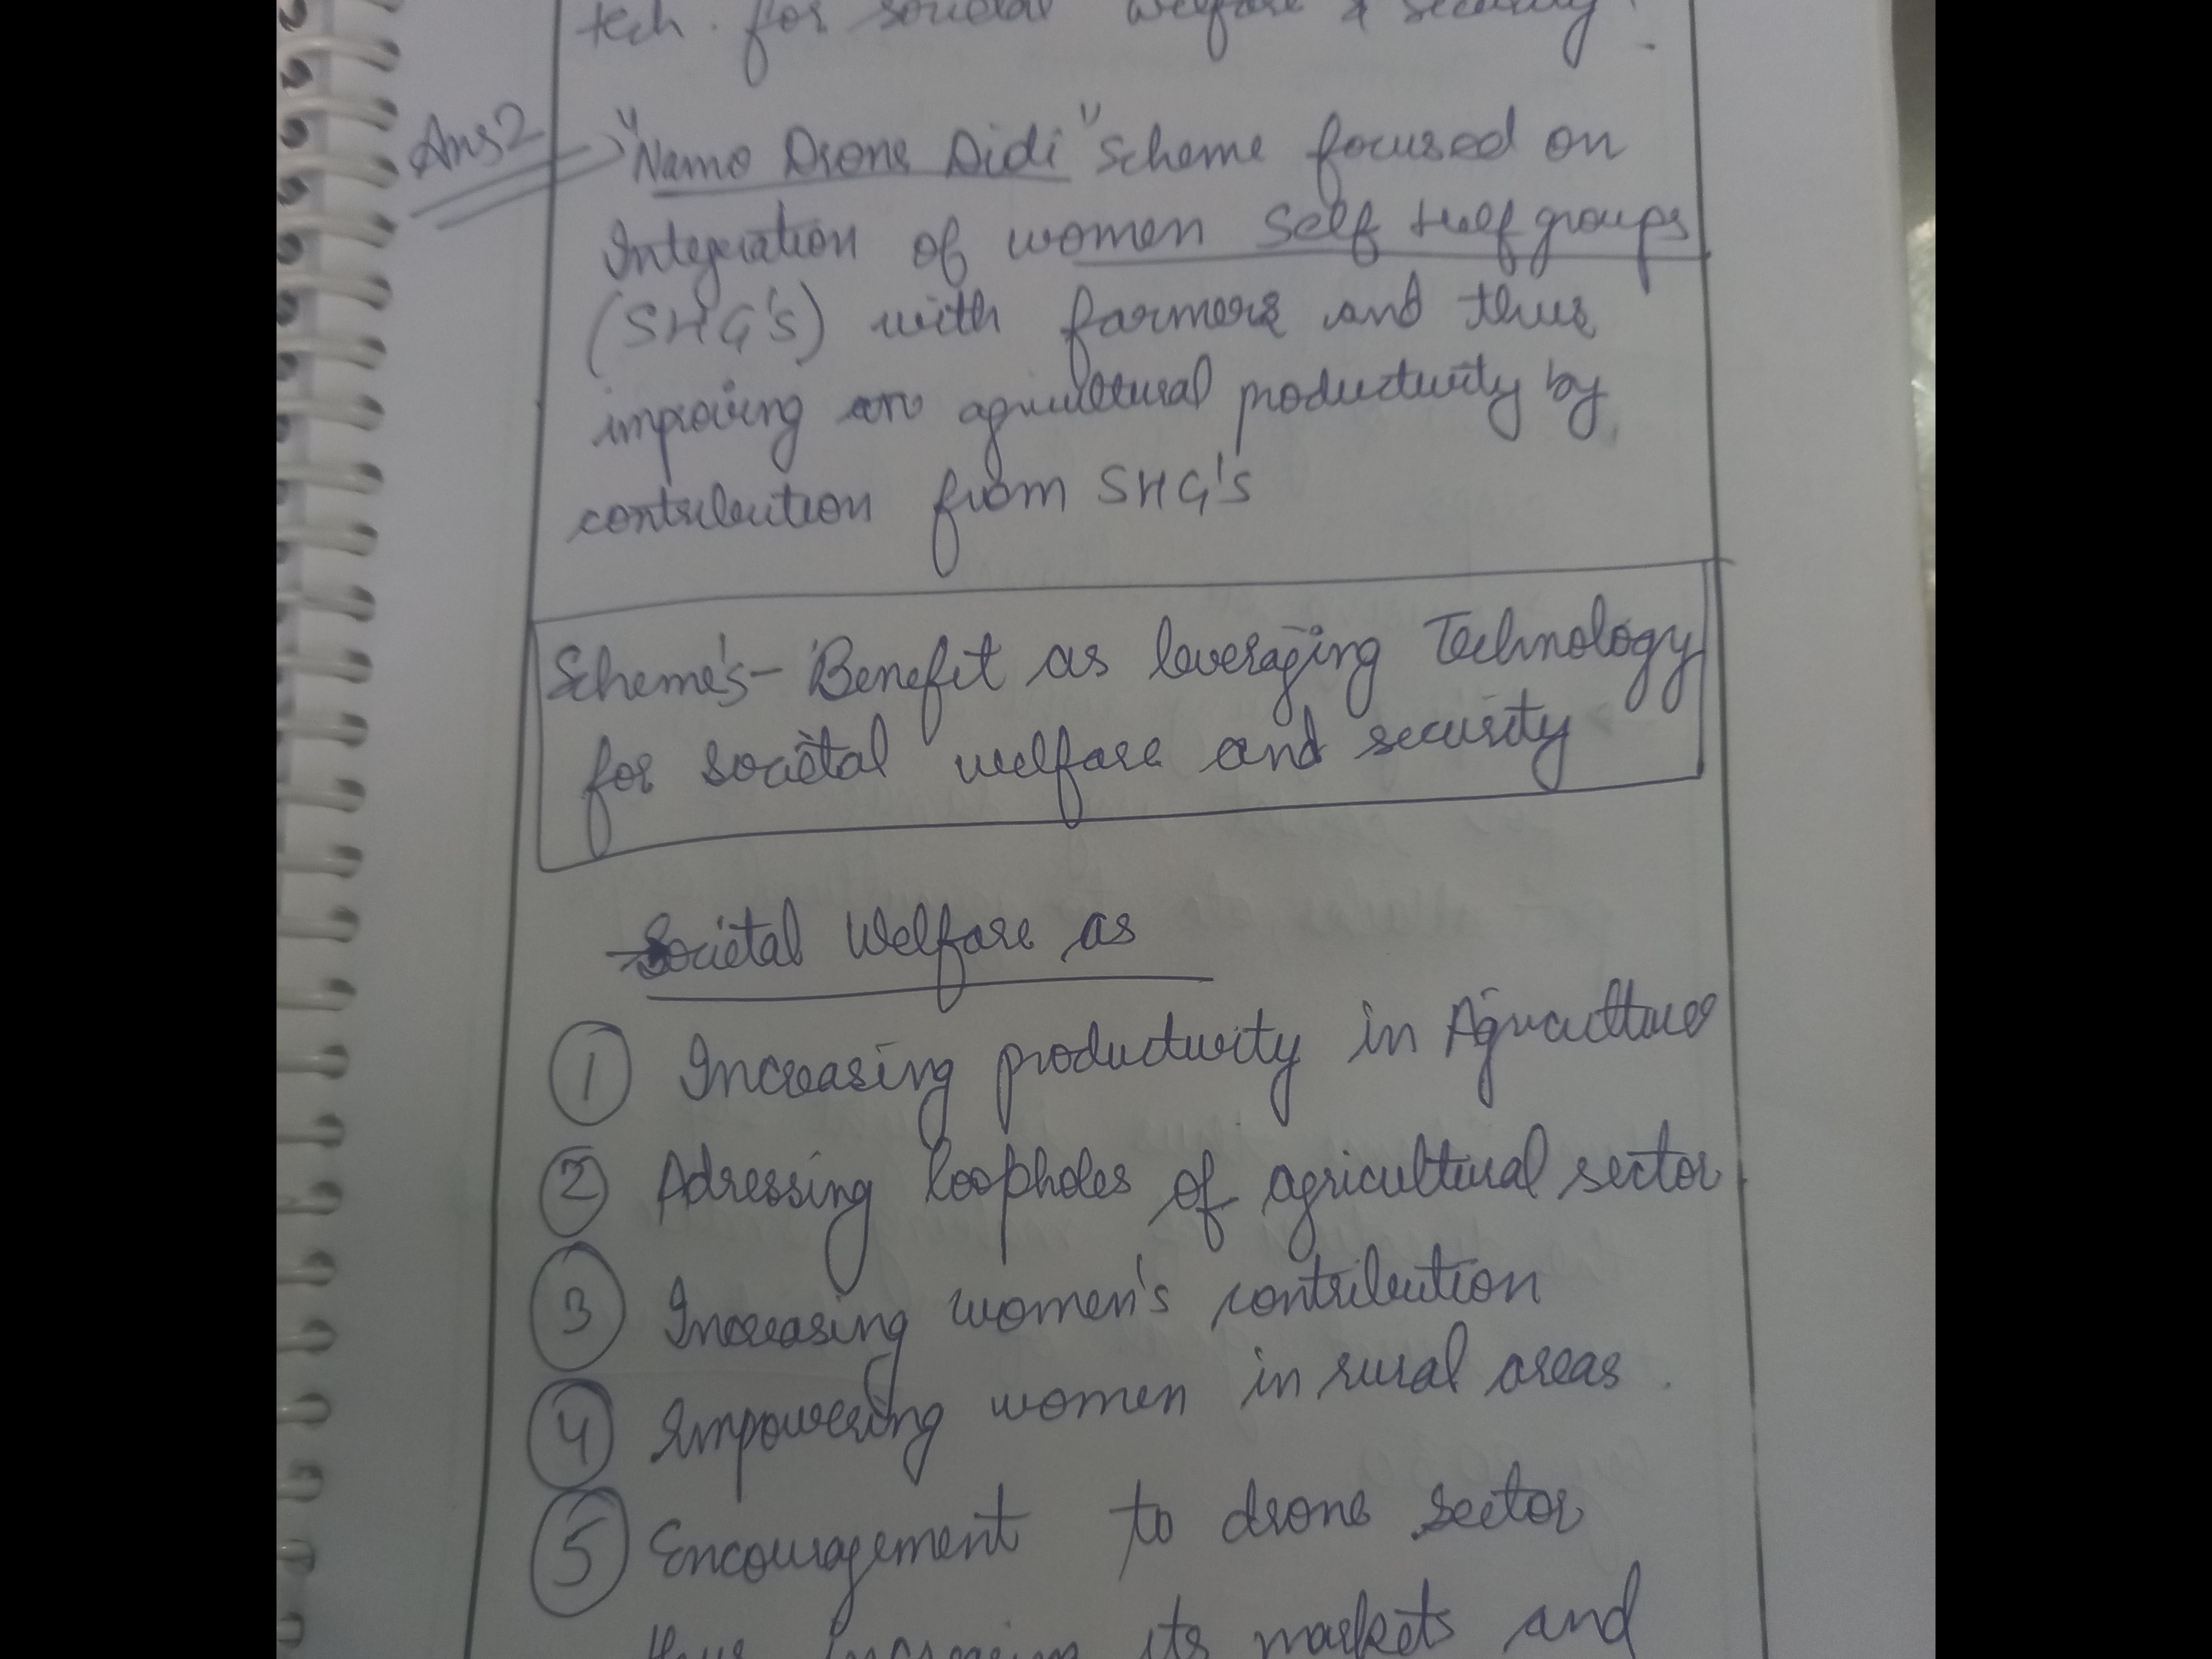 tech. for societal welfare & security.
Ans2
"Namo Drone Didi" scheme focused on
Integration of women self Help groups
(SHG's) with farmers and thus
improving agricultural productivity by
contribution from SHG's
Scheme's - Benefit as leveraging Technology
for societal welfare and security
Societal Welfare as
1 Increasing productivity in Agriculture
2 Adressing loopholes of agricultural sector
3 Increasing women's contribution
4 Empowering women in rural areas.
5 Encouragement to drone sector
thus increasing its markets and